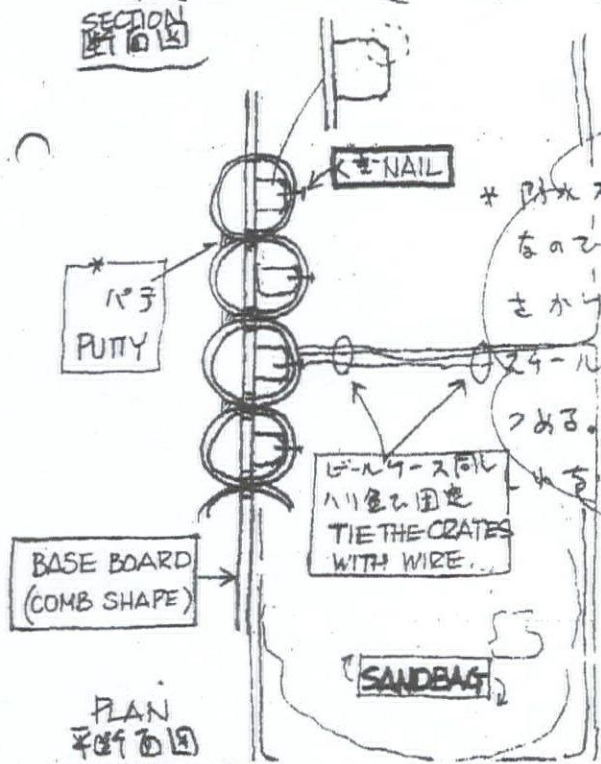 SECTION
断面図
くギ NAIL
*
パテ
PUTTY
* 防水
なので
さかい
スチール
つめる。
ビールケース同し
ハリ金で固定
TIE THE CRATES
WITH WIRE.
BASE BOARD
(COMB SHAPE)
SANDBAG
PLAN
平断面図